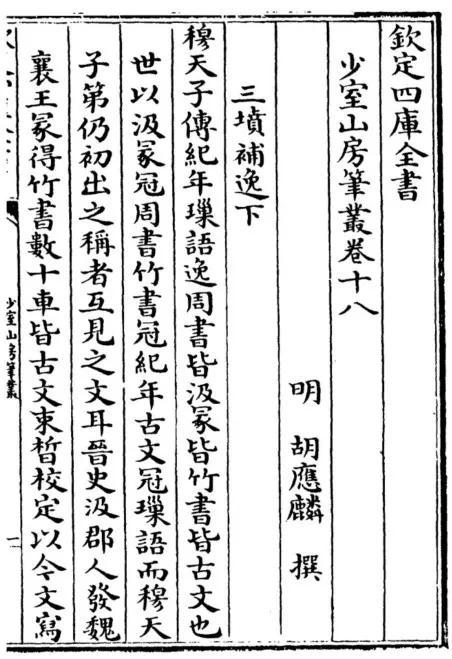 欽定四庫全書
少室山房筆叢卷十八
明 胡應麟 撰
三墳補逸下
穆天子傳紀年璅語逸周書皆汲冢皆竹書皆古文也
世以汲冢冠周書竹書冠紀年古文冠璅語而穆天
子第仍初出之稱者互見之文耳晉史汲郡人發魏
襄王冢得竹書數十車皆古文束晳校定以今文寫
少室山房筆叢
一